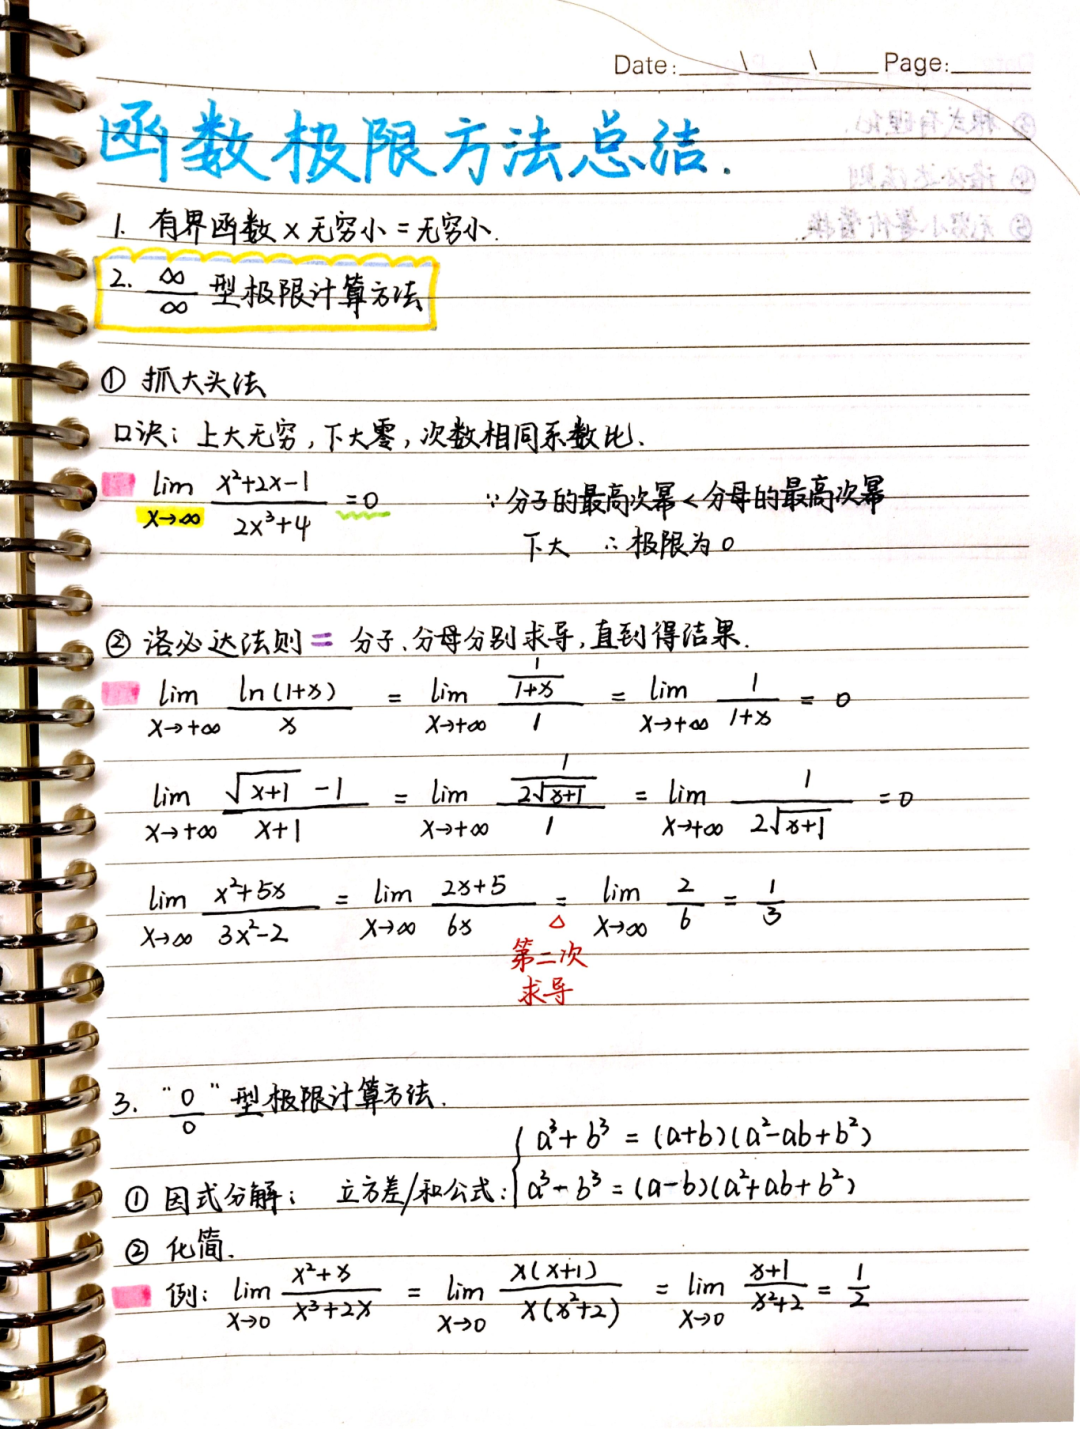 Date:____\____\____ Page:____
函数极限方法总结.
1. 有界函数×无穷小=无穷小.
2. ∞/∞ 型极限计算方法
① 抓大头法
口诀: 上大无穷,下大零,次数相同系数比.
lim x→∞ (x²+2x-1)/(2x³+4) =0 ∵分子的最高次幂<分母的最高次幂
下大 ∴极限为0
② 洛必达法则= 分子、分母分别求导,直到得结果.
lim x→+∞ ln(1+x)/x = lim x→+∞ (1/(1+x))/1 = lim x→+∞ 1/(1+x) = 0
lim x→+∞ (√(x+1) -1)/(x+1) = lim x→+∞ (1/(2√(x+1)))/1 = lim x→+∞ 1/(2√(x+1)) =0
lim x→∞ (x²+5x)/(3x²-2) = lim x→∞ (2x+5)/(6x) = lim x→∞ 2/6 = 1/3
△
第二次
求导
3. "0/0" 型极限计算方法.
a³+b³=(a+b)(a²-ab+b²)
① 因式分解: 立方差/和公式: a³-b³=(a-b)(a²+ab+b²)
② 化简.
例: lim x→0 (x²+x)/(x³+2x) = lim x→0 x(x+1)/x(x²+2) = lim x→0 (x+1)/(x²+2) = 1/2